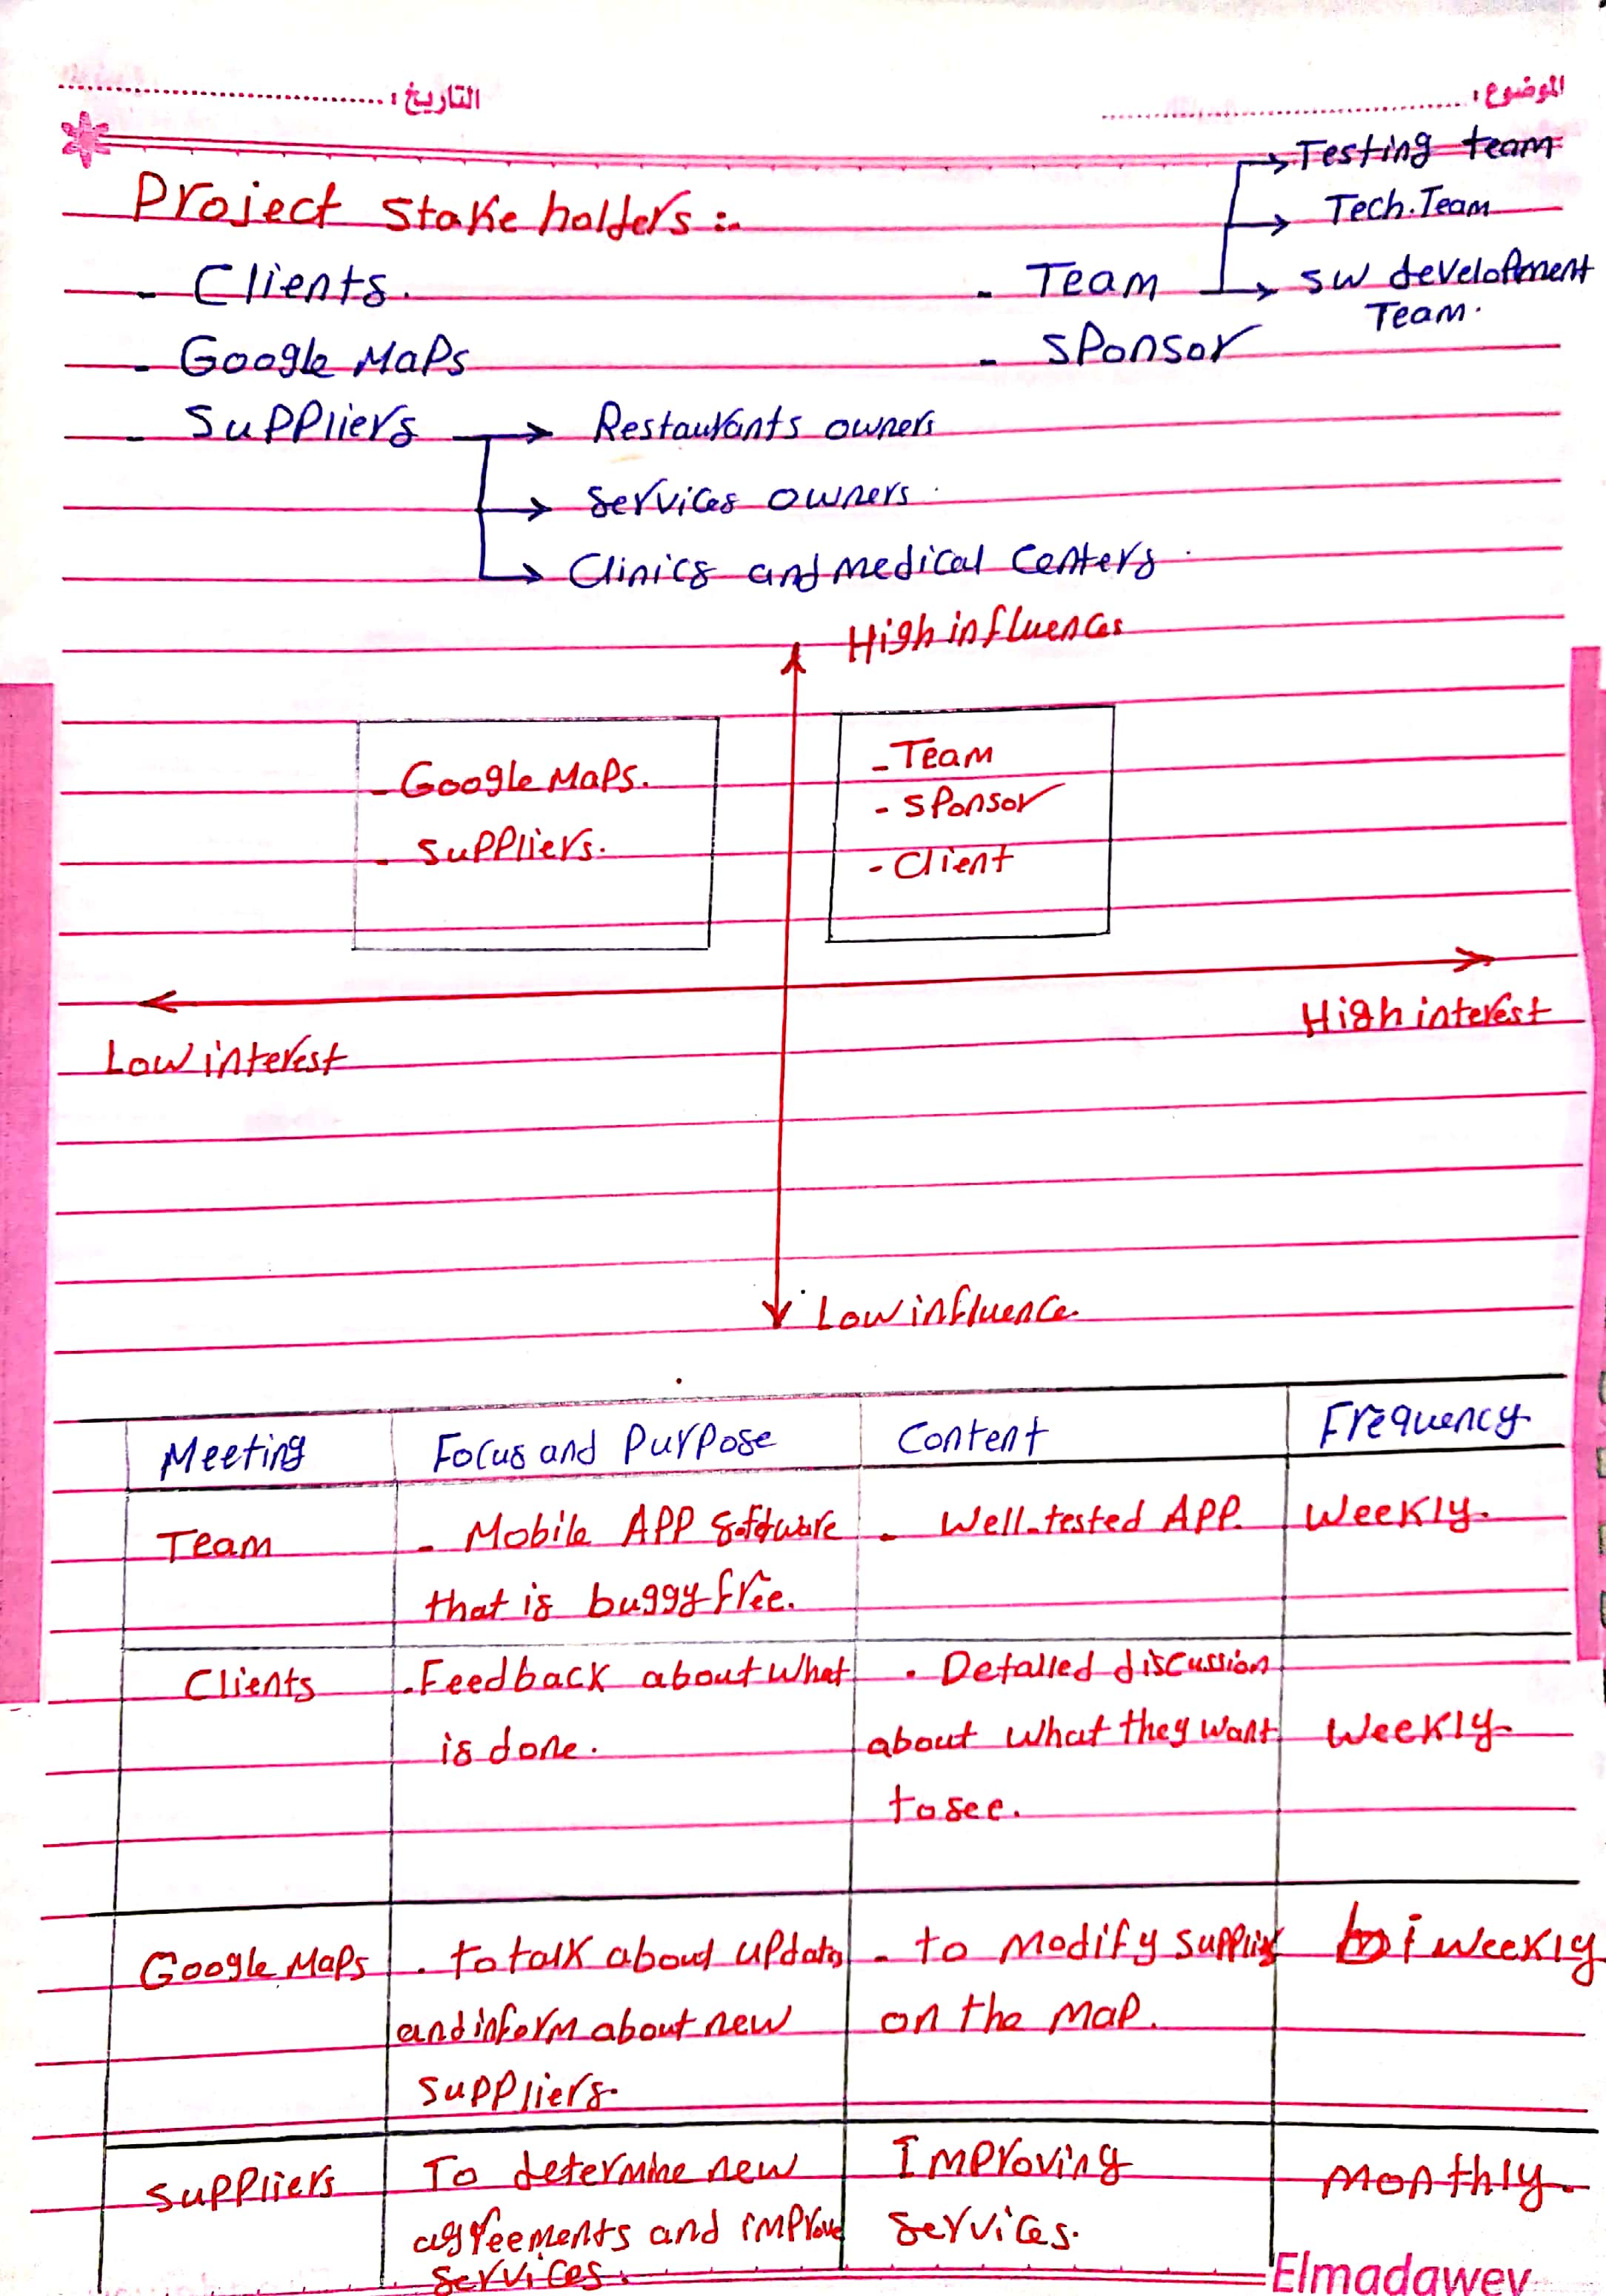 الموضوع:
التاريخ:
Project stake holders :-
- Clients.
- Google Maps
- Suppliers
Restaurants owners
Services owners.
Clinics and medical Centers.
- Team
Testing team
Tech. Team
SW development
Team.
- Sponsor
High influences
- Google Maps.
- Suppliers.
- Team
- Sponsor
- Client
Low interest
High interest
Low influence.
Meeting
Focus and Purpose
Content
Frequency
Team
- Mobile APP Software
that is buggy free.
- Well-tested APP.
Weekly.
Clients
. Feedback about what
is done.
. Detailed discussion
about what they want
to see.
Weekly.
Google Maps
. to talk about updates
and inform about new
suppliers.
- to modify supplies
on the map.
bi weekly
Suppliers
To determine new
agreements and improve
services.
Improving
services.
Monthly.
Elmadawey